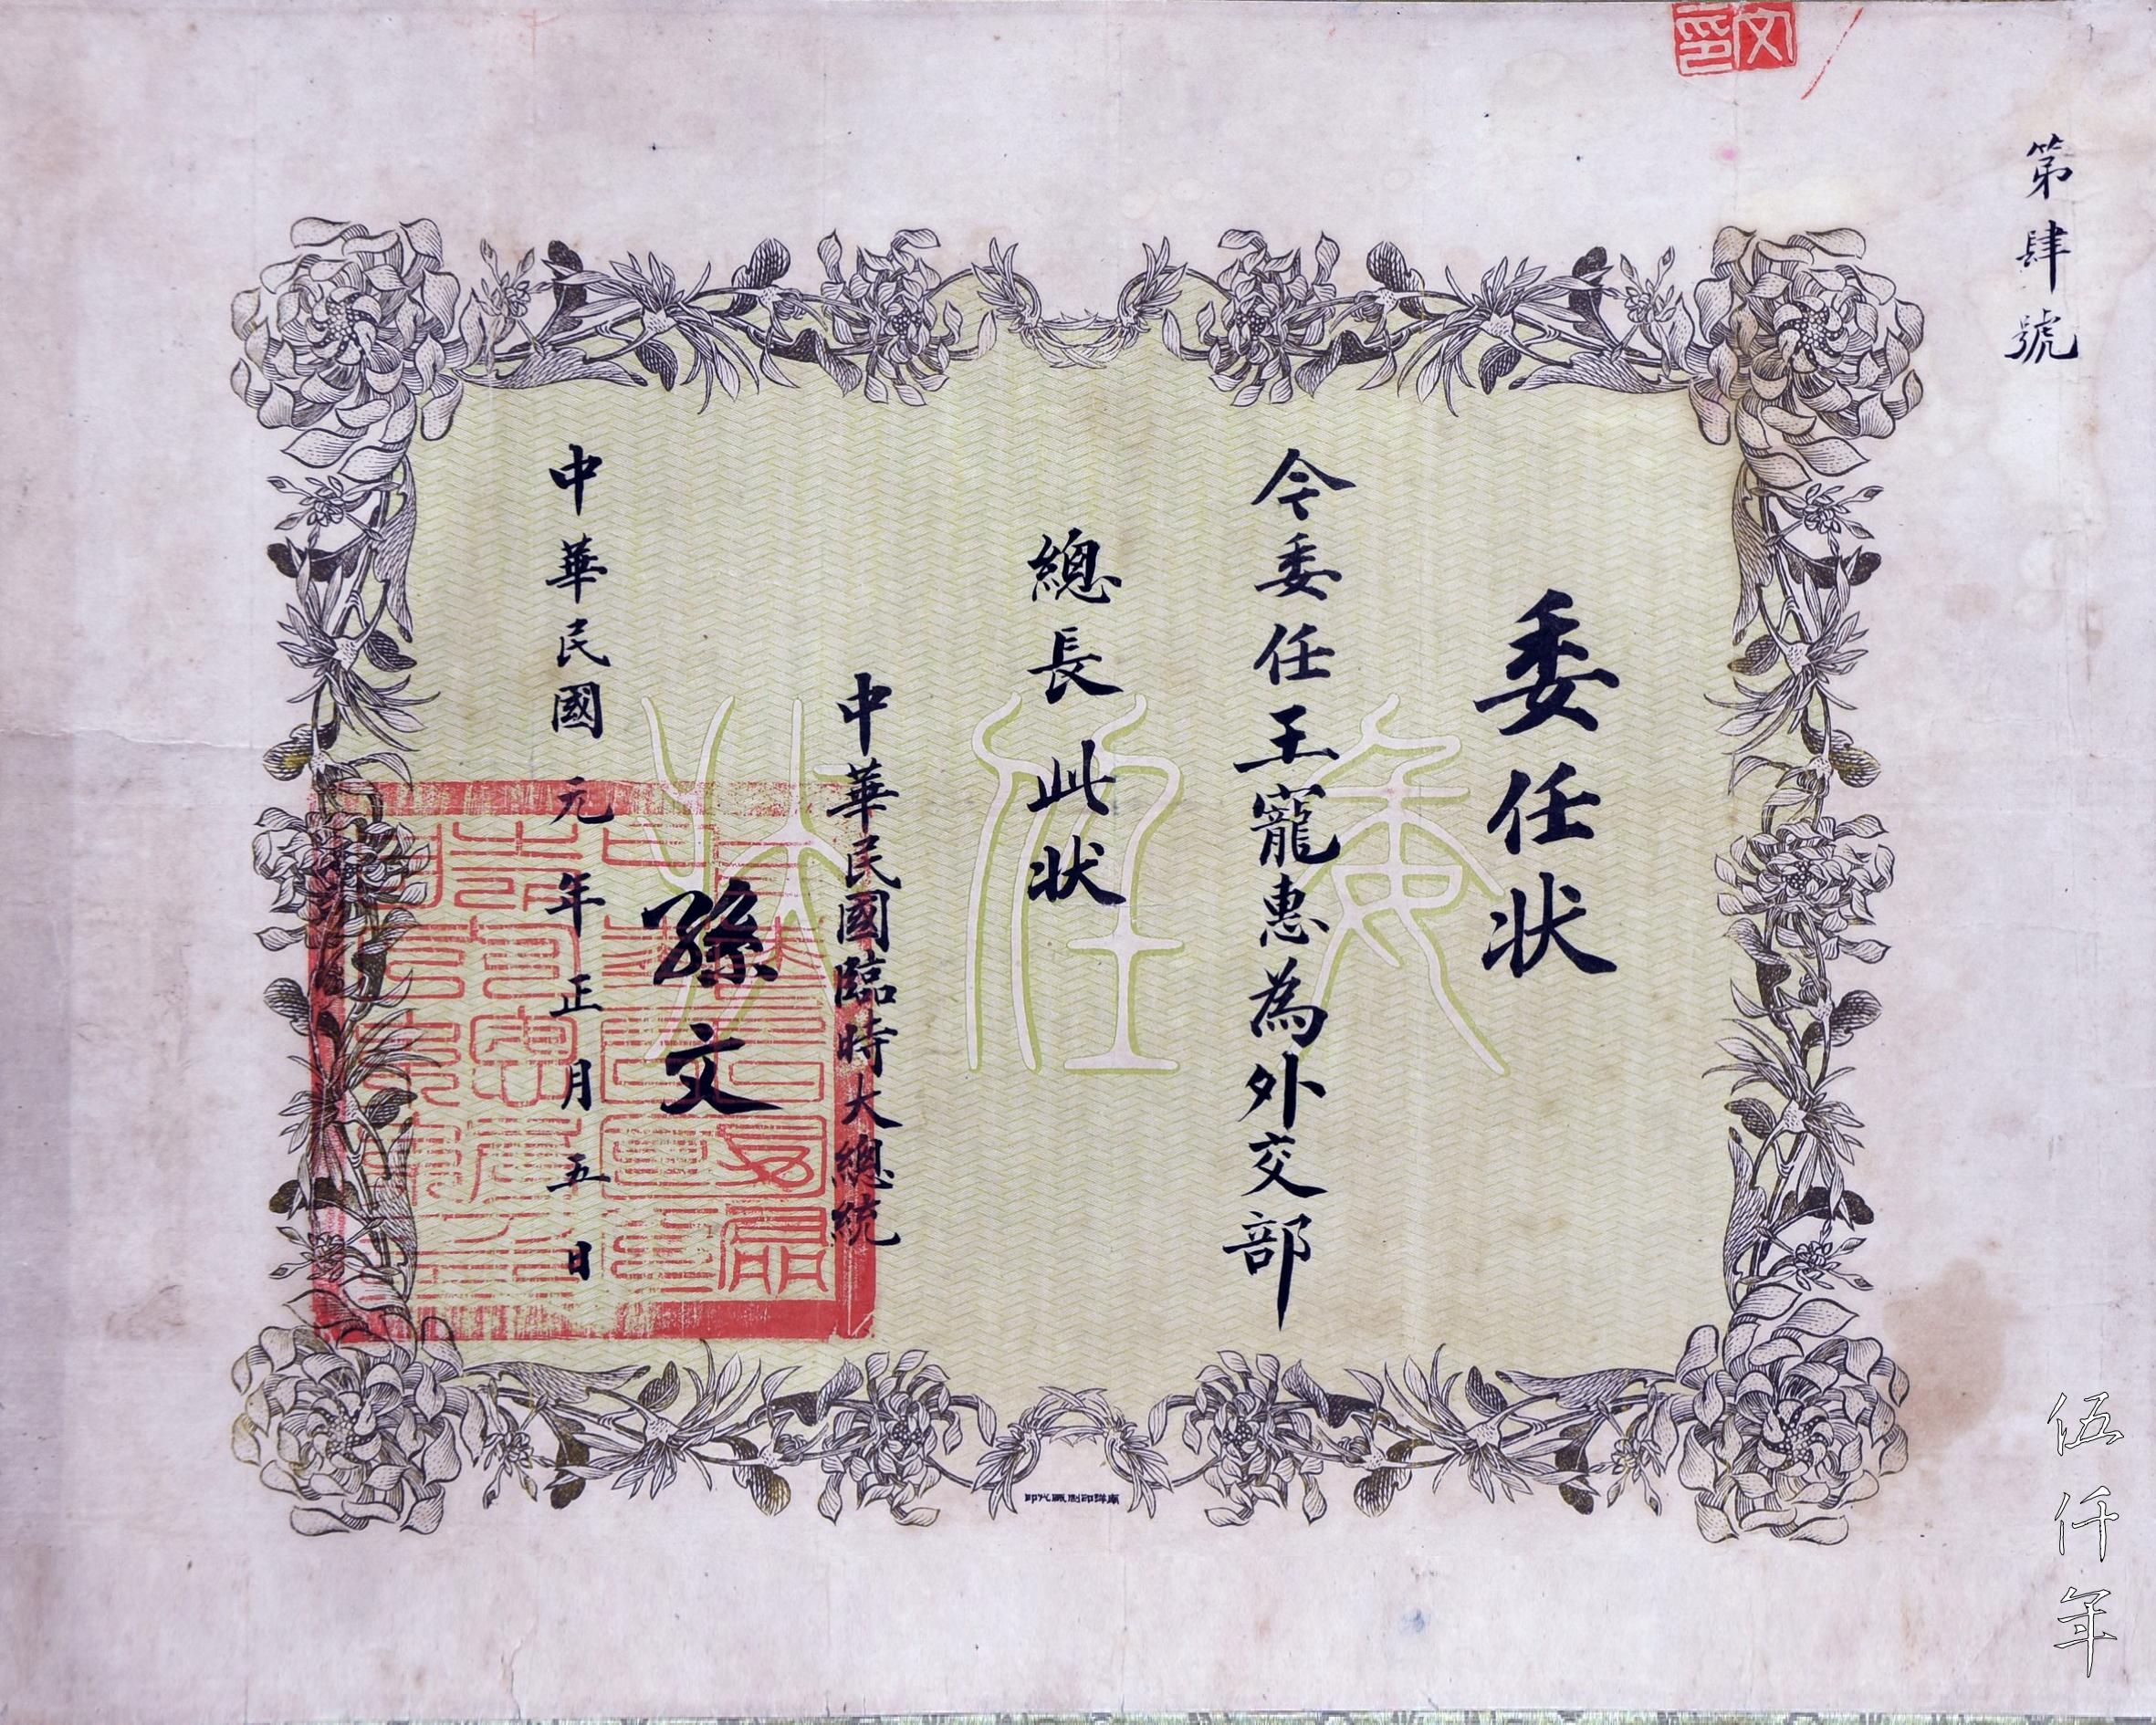 第肆號
委任狀
今委任王寵惠為外交部
總長此狀
中華民國臨時大總統
孫文
中華民國元年正月五日
委任狀
文印
南洋印刷厰代印
伍仟年